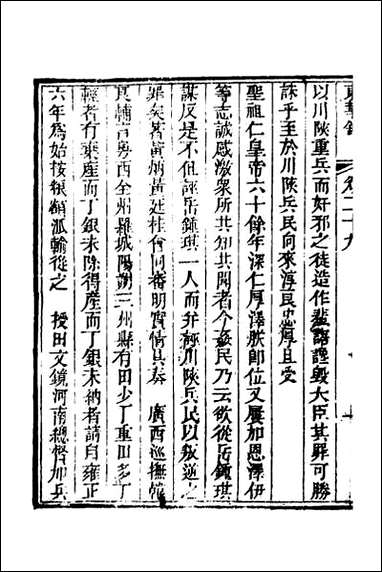 東華錄 卷二十九
以川陝重兵而奸邪之徒造作蜚語讒毀大臣其罪可勝
誅乎至於川陝兵民向來淳良忠厚且受
聖祖仁皇帝六十餘年深仁厚澤朕即位又屢加恩澤伊
等志誠感激衆所共知共聞者今姦民乃云欲從岳鍾琪
謀反是不但誣岳鍾琪一人而并誣川陝兵民以叛逆之
罪矣著黃炳黃廷桂會同審明實情具奏 廣西巡撫韓
良輔言粵西全州雒城陽朔三州縣有田少丁重田多丁
輕者有棄產而丁銀未除得產而丁銀未納者請自雍正
六年爲始按糧額派輸從之 授田文鏡河南總督加兵